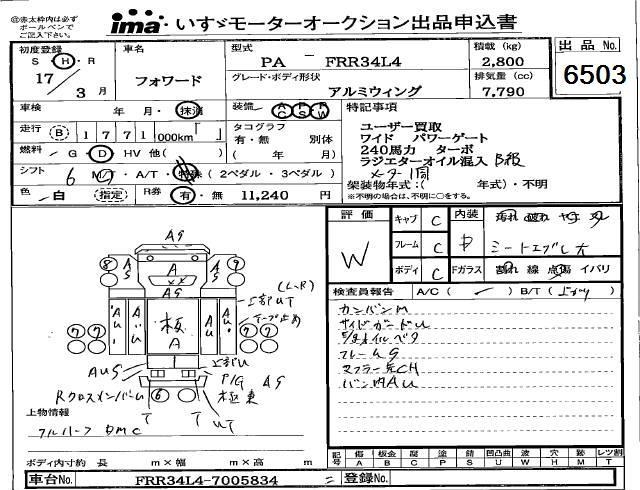 ◎赤太枠内は必ず
ボールペンで
ご記入下さい。
ima いすゞモーターオークション出品申込書
初度登録 車名 型式 積載 (kg) 出品 No.
S・H・R フォワード PA － FRR34L4 2,800
17 3 月 グレード・ボディ形状 アルミウィング 排気量 (cc) 7,790
6503
車検 年・月・抹消 装備 AC PS PW 特記事項
走行 B 1771 000km「 」 タコグラフ 有・無 別体 ( 年 月)
ユーザー買取
ワイド パワーゲート
燃料 G D HV 他( )
240馬力 ターボ
ラジエターオイル混入 B級
シフト 6 M/T・A/T・特殊 (2ペダル・3ペダル)
メーター1同
架装物年式:( 年式)・不明
※不明の場合は、不明に○をする。
色 白 (指定) R券 有・無 11,240 円
評価 W
キャブ C 内装
フレーム C シートエプレ大
ボディ C Fガラス 割れ 線 点傷 イバリ
検査員報告 A/C ( ) B/T ( )
カンバンM
サイドガードU
フレームS
マフラー矢CH
バン内AU
AG
A
AG
AS
AS
板
A
(L,R)
上部UT
テープ止め
上部U
AUG
P/G AG
Rクロスメンバー U
T
T
UT
⑧ ⑨
⑦⑦ ⑦⑦
⑥
上物情報
フルハーフ DMC
ボディ内寸約 長 m×幅 m×高 m
記号 傷 A 板金 B 腐 C 塗 P 錆 S 凹凸曲 U 波 W 穴 H 跡 M レツ割 T
車台No. FRR34L4-7005834 = 登録No.